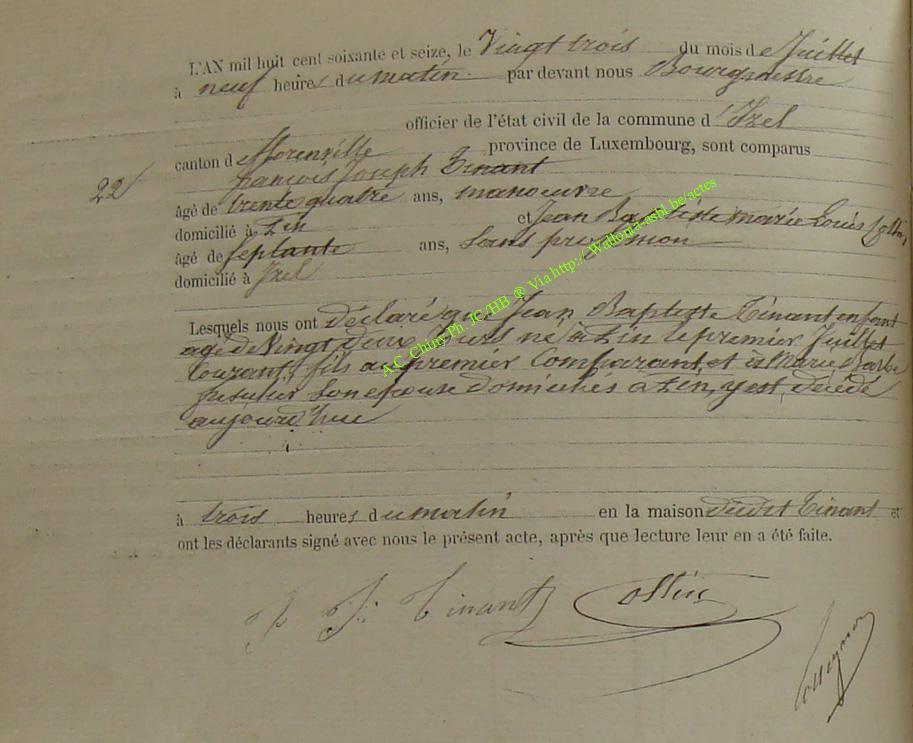 L'AN mil huit cent soixante et seize, le Vingt trois du mois de Juillet
à neuf heures du matin par devant nous Bourgmestre
officier de l'état civil de la commune d'Izel
canton de Florenville province de Luxembourg, sont comparus
22
françois Joseph Tinant
âgé de trente quatre ans, manoeuvre
domicilié à et Jean Baptiste marie Louis Collin,
âgé de septante ans, Sans profession
domicilié à Izel
Lesquels nous ont déclaré que Jean Baptiste Tinant enfant
agé de Vingt deux Jours né à le premier Juillet
Courant, fils au premier Comparant, et à Marie Barbe
Son epouse domiciliés a y est, décédé
aujourd'hui
à trois heures du matin en la maison dudit Tinant et
ont les déclarants signé avec nous le présent acte, après que lecture leur en a été faite.
F. J. Tinant Collin
A.C. Chiny Ph. JC/HB ® Via http://Wallonia-asbl.be/actes